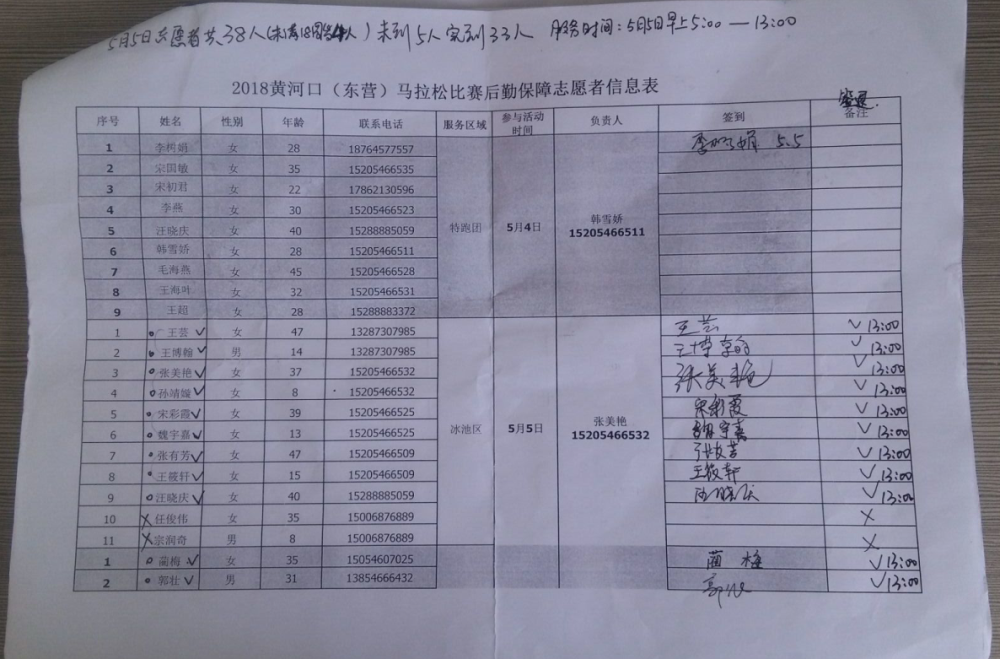 5月5日志愿者共38人(未满18周岁4人)未到5人实到33人 服务时间:5月5日早上5:00 — 13:00
2018黄河口(东营)马拉松比赛后勤保障志愿者信息表
序号 姓名 性别 年龄 联系电话 服务区域 参与活动时间 负责人 签到 签退 备注
1 李树娟 女 28 18764577557 5.5
2 宋国敏 女 35 15205466535
3 宋初君 女 22 17862130596
4 李燕 女 30 15205466523
5 汪晓庆 女 40 15288885059 特跑团 5月4日 韩雪娇 15205466511
6 韩雪娇 女 28 15205466511
7 毛海燕 女 45 15205466528
8 王海叶 女 32 15205466531
9 王超 女 28 15288883372
1 王芸 ✓ 女 47 13287307985 王芸 ✓ 13:00
2 王博翰 ✓ 男 14 13287307985 ✓ 13:00
3 张美艳 ✓ 女 37 15205466532 张美艳 ✓ 13:00
4 孙靖媛 ✓ 女 8 15205466532 ✓ 13:00
5 宋彩霞 ✓ 女 39 15205466525 宋彩霞 ✓ 13:00
6 魏宇嘉 ✓ 女 13 15205466525 冰池区 5月5日 张美艳 15205466532 魏宇嘉 ✓ 13:00
7 张有芳 ✓ 女 47 15205466509 ✓ 13:00
8 王筱轩 ✓ 女 15 15205466509 王筱轩 ✓ 13:00
9 汪晓庆 ✓ 女 40 15288885059 汪晓庆 ✓ 13:00
10 × 任俊伟 女 35 15006876889 ×
11 × 宗润奇 男 8 15006876889 ×
1 蔺梅 ✓ 女 35 15054607025 蔺梅 ✓ 13:00
2 郭壮 ✓ 男 31 13854666432 郭壮 ✓ 13:00